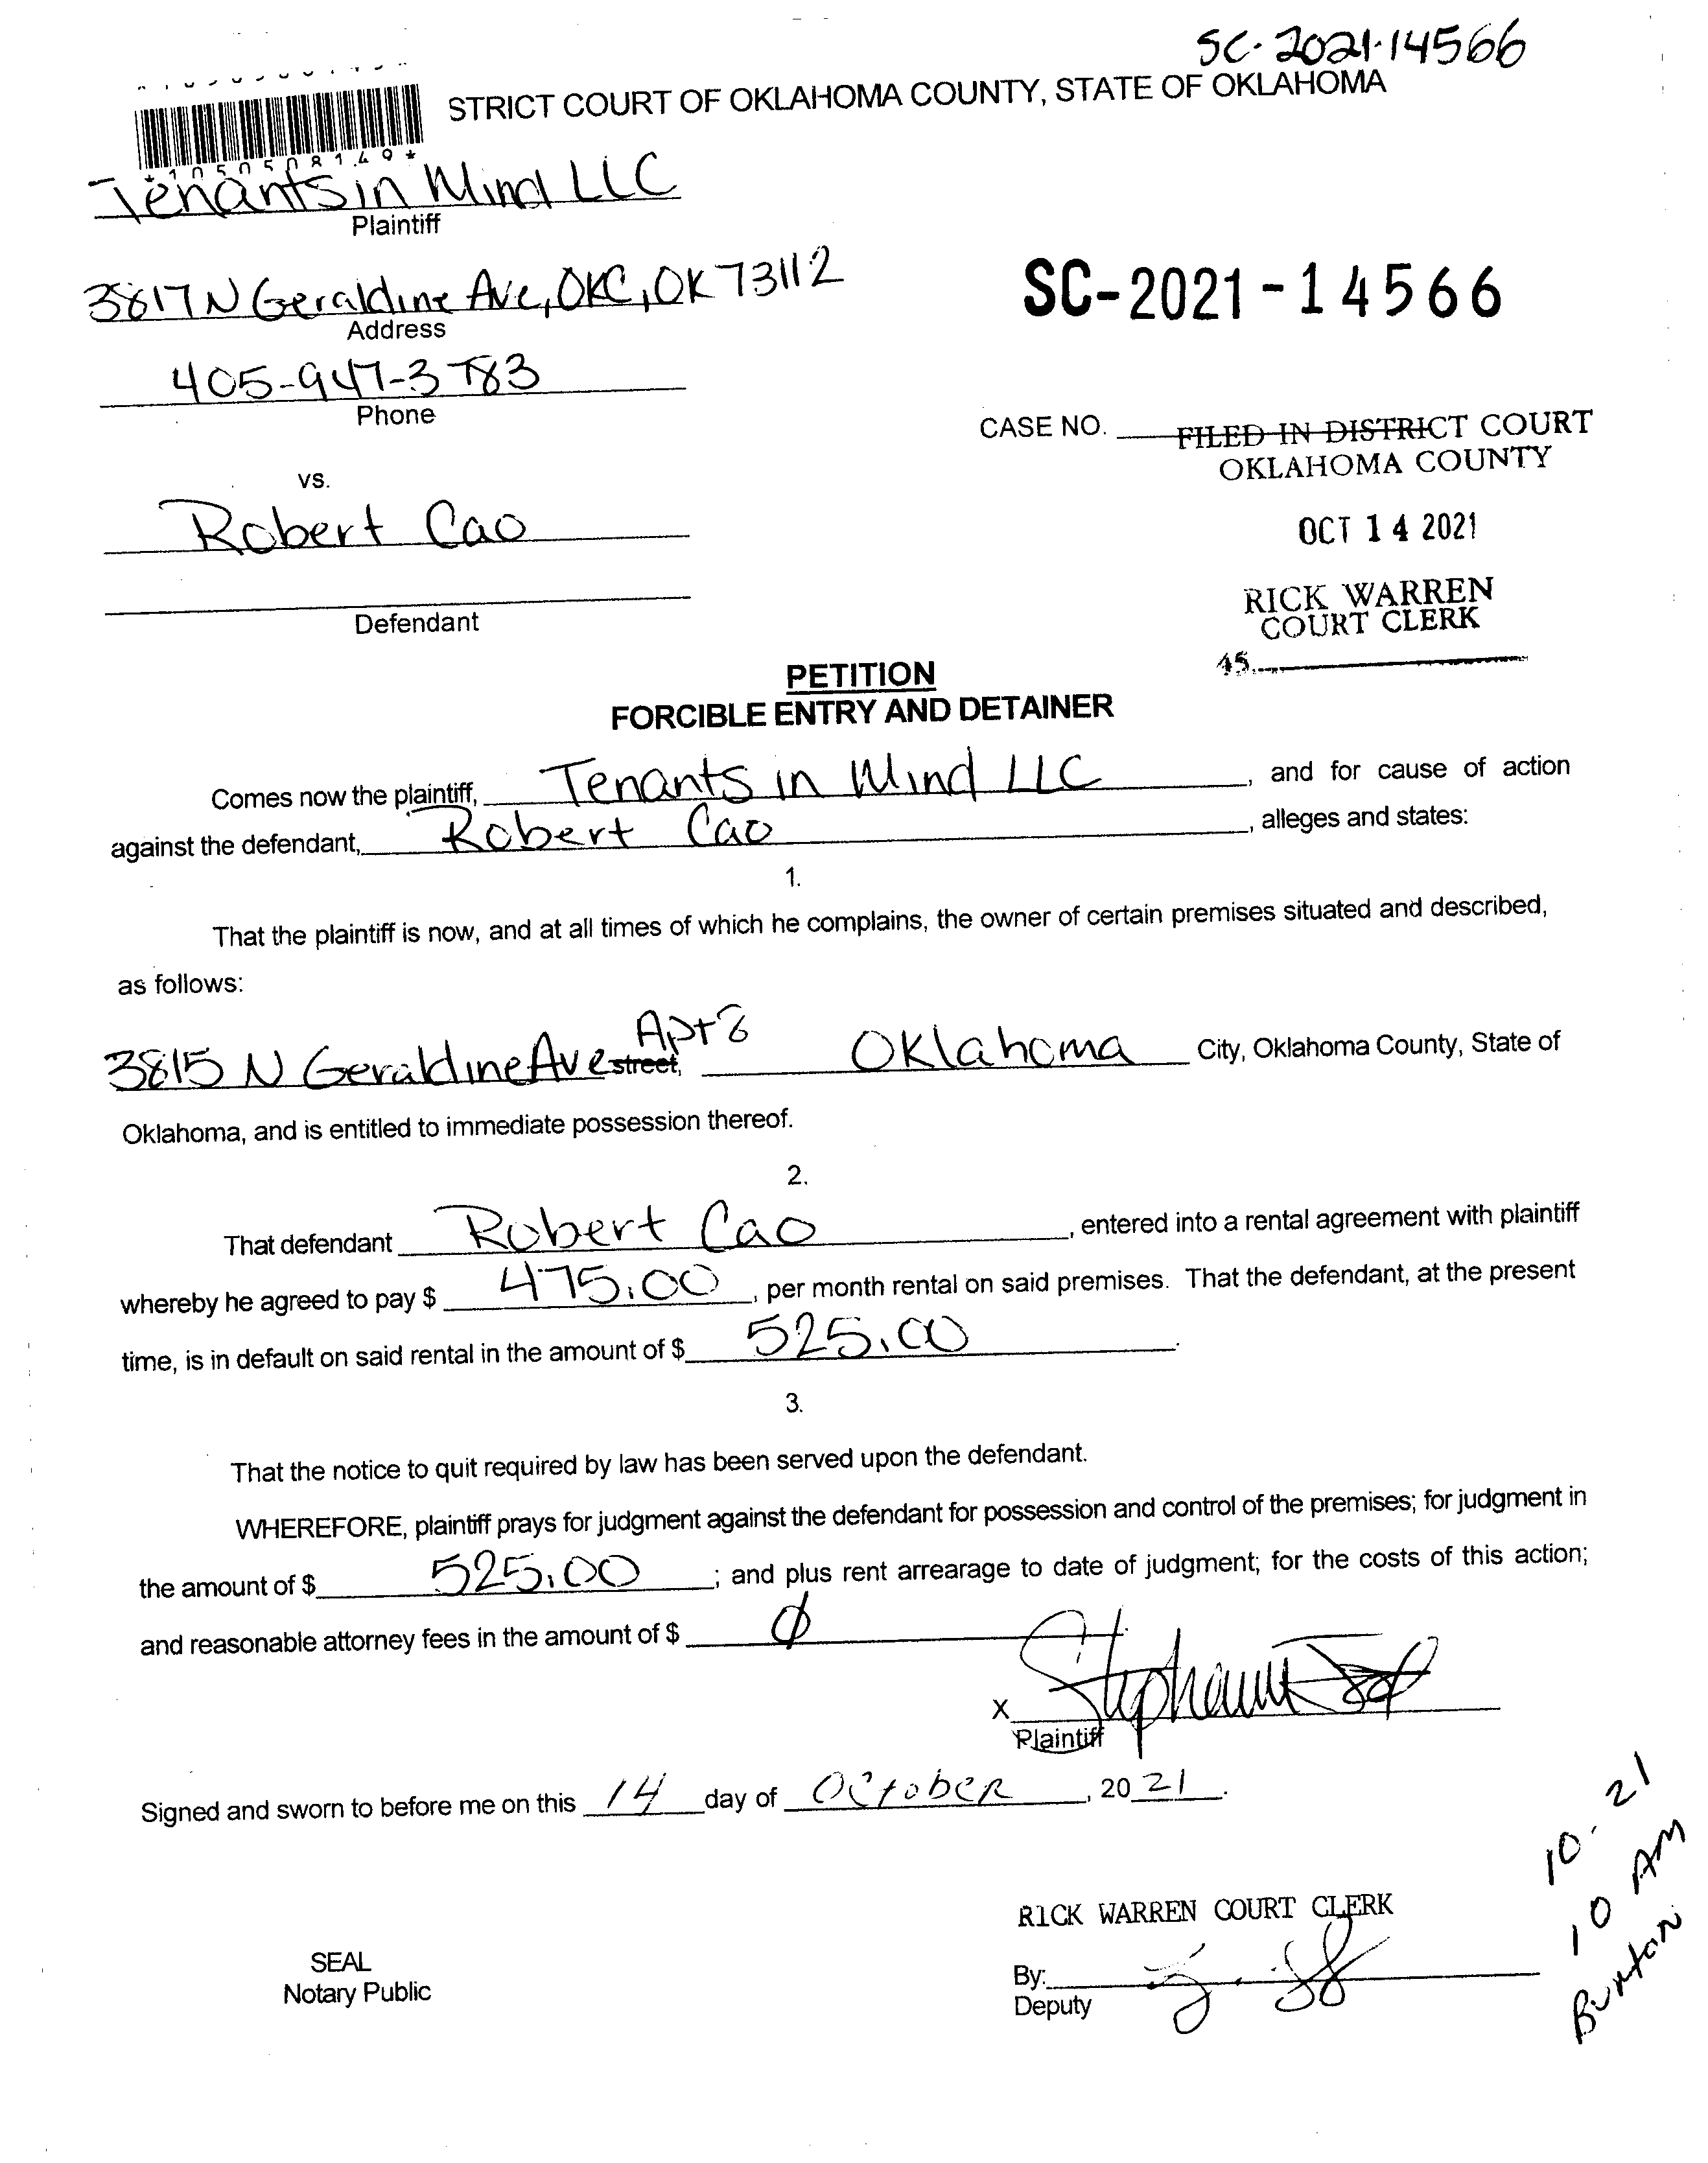 SC-2021-14566
STRICT COURT OF OKLAHOMA COUNTY, STATE OF OKLAHOMA
*1050508149*
Tenants in Mind LLC
Plaintiff
3817 N Geraldine Ave, OKC, OK 73112
Address
SC-2021-14566
405-947-3783
Phone
CASE NO.
FILED IN DISTRICT COURT
OKLAHOMA COUNTY
vs.
Robert Cao
OCT 14 2021
Defendant
RICK WARREN
COURT CLERK
45
PETITION
FORCIBLE ENTRY AND DETAINER
Comes now the plaintiff, Tenants in Mind LLC, and for cause of action
against the defendant, Robert Cao, alleges and states:
1.
That the plaintiff is now, and at all times of which he complains, the owner of certain premises situated and described,
as follows:
3815 N Geraldine Ave street, Apt 8 Oklahoma City, Oklahoma County, State of
Oklahoma, and is entitled to immediate possession thereof.
2.
That defendant Robert Cao, entered into a rental agreement with plaintiff
whereby he agreed to pay $ 475.00, per month rental on said premises. That the defendant, at the present
time, is in default on said rental in the amount of $ 525.00.
3.
That the notice to quit required by law has been served upon the defendant.
WHEREFORE, plaintiff prays for judgment against the defendant for possession and control of the premises; for judgment in
the amount of $ 525.00; and plus rent arrearage to date of judgment; for the costs of this action;
and reasonable attorney fees in the amount of $ ∅
X Stephanie
Plaintiff
Signed and sworn to before me on this 14 day of October, 20 21.
10-21
10 AM
Burton
RICK WARREN COURT CLERK
SEAL
Notary Public
By:
Deputy